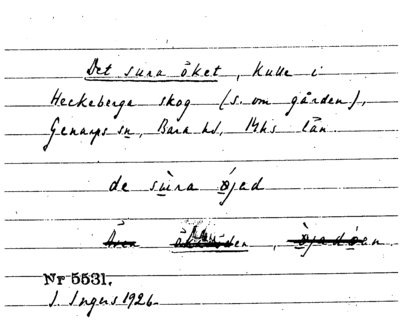 Det sura öket, Kulle i
Heckeberga skog (s. om gården),
Genarps sn, Bara hd, Mhs län
de sùra øjad
Även , øjadøen
Nr 5531.
I. Ingers 1926.